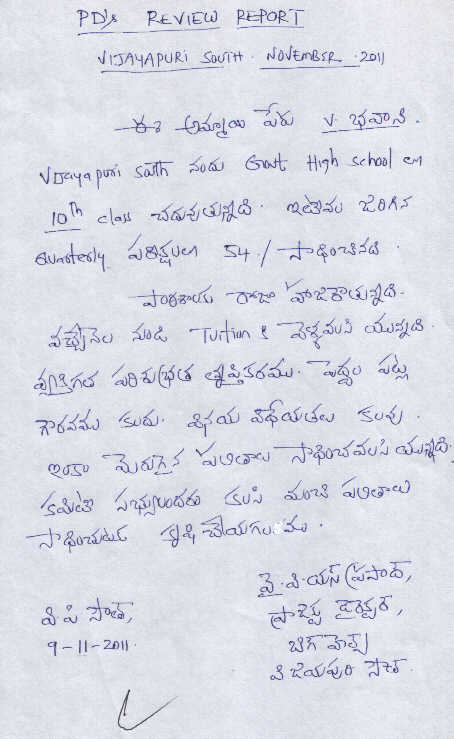 PD's REVIEW REPORT
VIJAYAPURI SOUTH . NOVEMBER . 2011
ఈ అమ్మాయి పేరు V. భవాని .
Vijayapuri South నందు Govt High School లో
10th class చదువుతున్నది . ఇటీవల జరిగిన
Quarterly పరీక్షలలో 54 ./ సాధించినది .
పాఠశాలకు రోజూ హాజరౌతున్నది .
వచ్చేనెల నుండి Tuition కి వెళ్ళవలసి యున్నది .
వ్యక్తిగత పరిశుభ్రత తృప్తికరము . పెద్దల పట్ల
గౌరవము కలదు . వినయ విధేయతలు కలవు .
ఇంకా మెరుగైన ఫలితాలు సాధించవలసి యున్నది .
కమిటీ సభ్యులందరు కలసి మంచి ఫలితాలు
సాధించుటకు కృషి చేయగలము .
వై . వి . యస్ ప్రసాద్ ,
ప్రాజెక్టు డైరెక్టర్ ,
బిగ్ హెల్ప్
విజయపురి సౌత్ .
వి . పి సౌత్ ,
9-11-2011 .